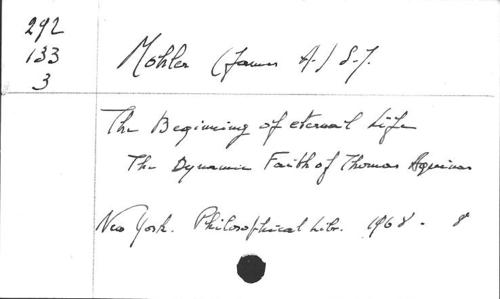 292
133
3
Mohler (James A.) S.J.
The Beginning of eternal Life
The Dynamic Faith of Thomas Aquinas
New York. Philosophical Libr. 1968. 8